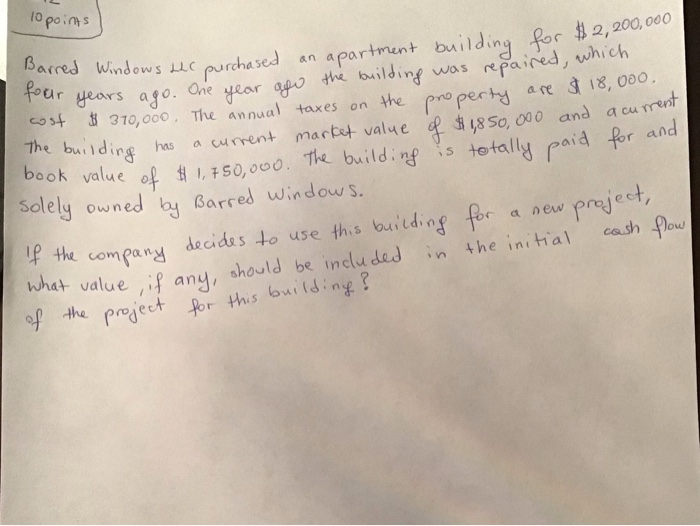 10 points
Barred Windows LLC purchased an apartment building for $2,200,000
four years ago. One year ago the building was repaired, which
cost $ 370,000. The annual taxes on the property are $ 18,000.
The building has a current market value of $1,850,000 and a current
book value of $1,750,000. The building is totally paid for and
solely owned by Barred Windows.
If the company decides to use this building for a new project,
what value, if any, should be included in the initial cash flow
of the project for this building?